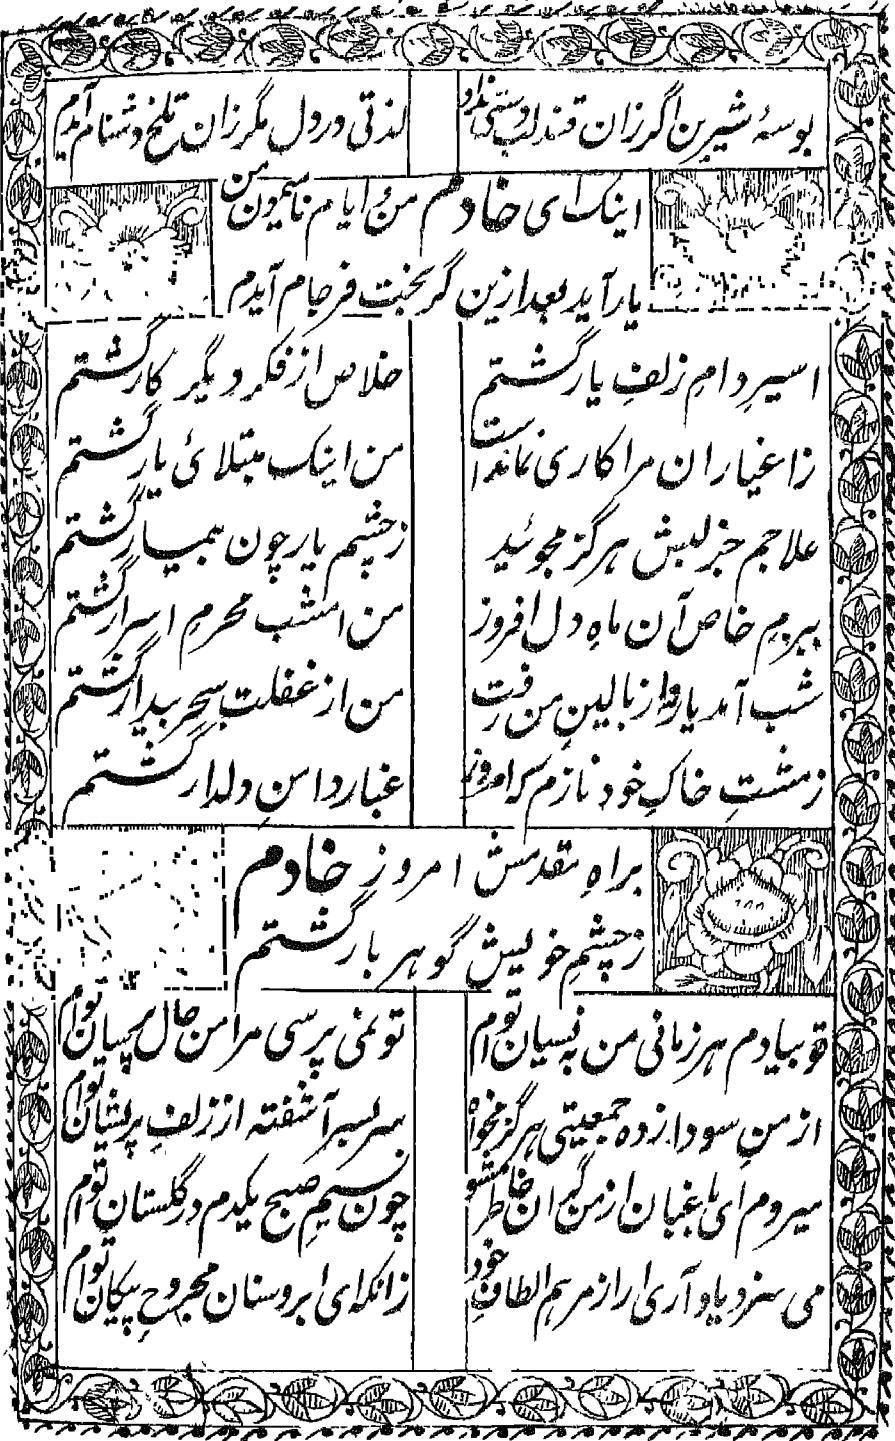 بوسهٔ شیرین اگر زان قند لب دستی نداد لذتی در دل مگر زان تلخ دشنام آیدم
اینک ای خادم من و ایام نامیمون من
یار آید بعد ازین گر بخت فرجام آیدم
اسیرِ دامِ زلفِ یار گشتم خلاص از فکر دیگر کار گشتم
ز اغیاران مرا کاری نمانداست من اینک مبتلائ یار گشتم
علاجم جز لبش هرگز مجوئید ز چشم یار چون بیمار گشتم
ببزمِ خاص آن ماهِ دل افروز من امشب محرمِ اسرار گشتم
شب آمد یار و از بالینِ من رفت من از غفلت سحر بیدار گشتم
ز مشتِ خاکِ خود نازم که امروز غبار دامنِ دلدار گشتم
براهِ مقدمش امروز خادم
ز چشمِ خویش گوهر بار گشتم
تو بیادم هر زمانی من به نسیان توام تو نمی پرسی مرا من حال پرسیان توام
از منِ سودا زده جمعیتی هرگز مخواه سر بسر آشفته از زلفِ پریشان توام
میروم ای باغبان از من گران خاطر مشو چون نسیمِ صبح یکدم در گلستان توام
می سزد یاد آری ار از مرهم الطافِ خود زانکه ای ابرو سنان مجروحِ پیکان توام